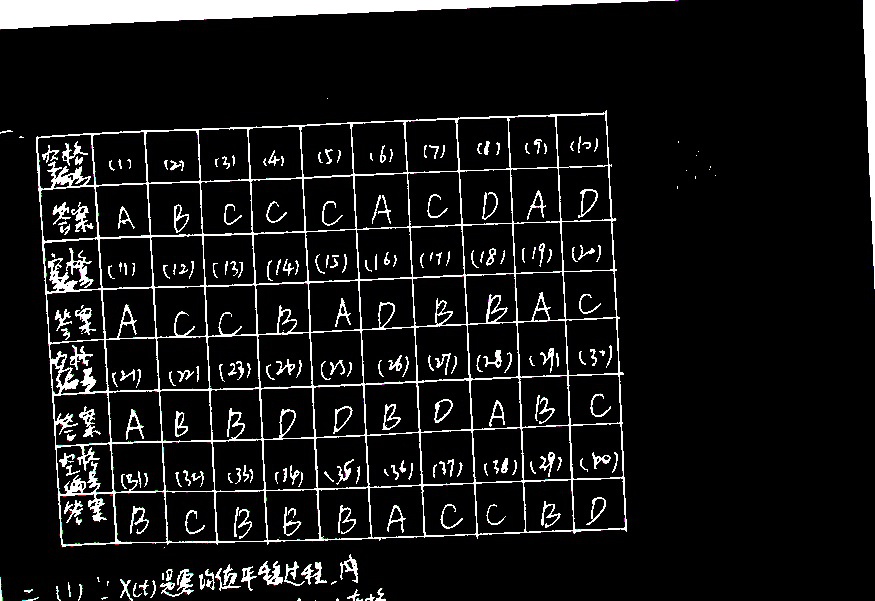 空格编号 (1) (2) (3) (4) (5) (6) (7) (8) (9) (10)
答案 A B C C C A C D A D
空格编号 (11) (12) (13) (14) (15) (16) (17) (18) (19) (20)
答案 A C C B A D B B A C
空格编号 (21) (22) (23) (24) (25) (26) (27) (28) (29) (30)
答案 A B B D D B D A B C
空格编号 (31) (32) (33) (34) (35) (36) (37) (38) (39) (40)
答案 B C B B B A C C B D
二 (1) ∵ X(t)是零均值平稳过程